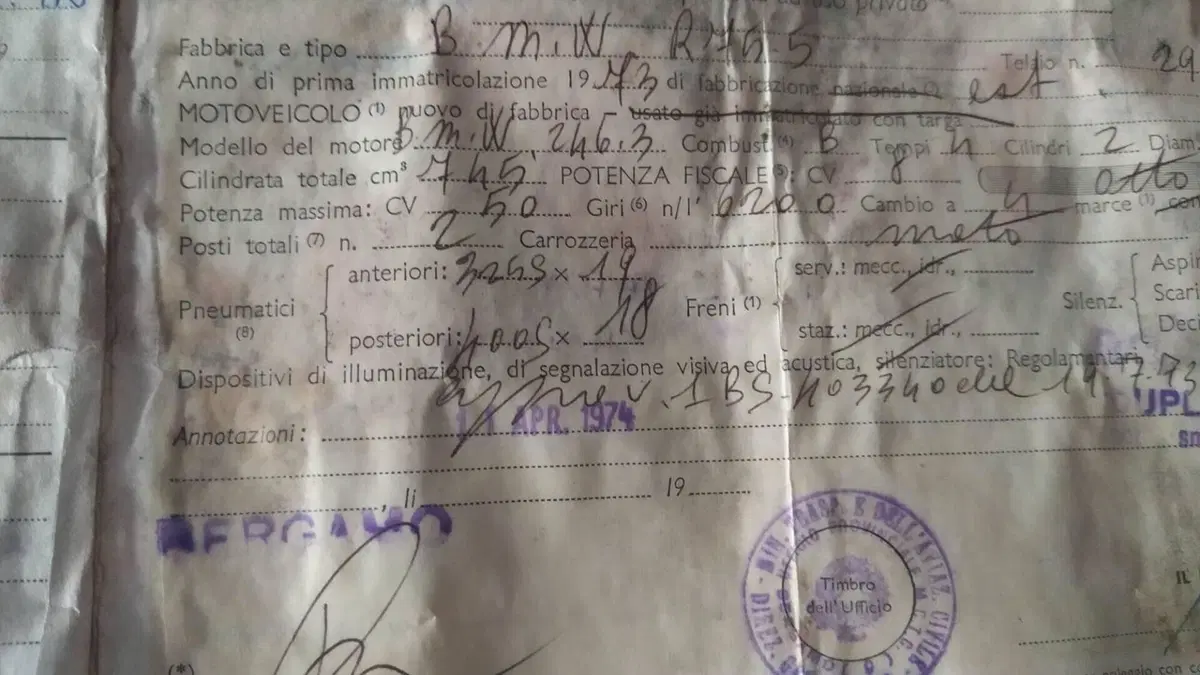 uso privato
Fabbrica e tipo B.M.W R75 5 Telaio n. 29
Anno di prima immatricolazione 1973 di fabbricazione nazionale est
MOTOVEICOLO (1) nuovo di fabbrica - usato già immatricolato con targa
Modello del motore B.M.W. 246.3 Combust. (4) B Tempi 4 Cilindri 2 Diam.
Cilindrata totale cm³ 745 POTENZA FISCALE (5): CV 8 otto
Potenza massima: CV 50 Giri (6) n/1' 6200 Cambio a 4 marce (1) con
Posti totali (7) n. 2 Carrozzeria moto
anteriori: 325S × 19 serv.: mecc., idr., Aspir
Pneumatici (8) Freni (1) Silenz. Scari
posteriori: 400S × 18 staz.: mecc., idr., Deci
Dispositivi di illuminazione, di segnalazione visiva ed acustica, silenziatore: Regolamentari
approv. 1BS 403340 del 19.7.73
Annotazioni: 11 APR. 1974 UPL
, li 19
BERGAMO
Timbro
dell'Ufficio
IL
(*)